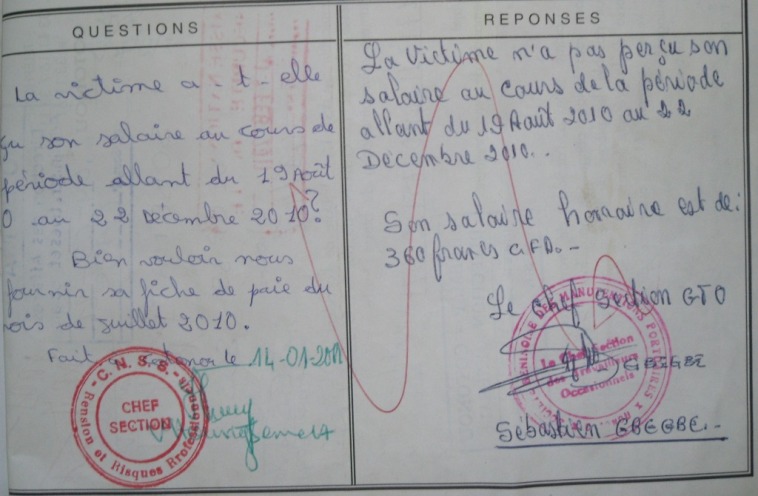 QUESTIONS
La victime a-t-elle
çu son salaire au cours de
période allant du 19 Août
0 au 22 Décembre 2010?
Bien vouloir nous
fournir sa fiche de paie du
mois de Juillet 2010.
Fait le 14-01-2011
C.N.S.S.
CHEF
SECTION
Pension et Risques Professionnels
REPONSES
La Victime n'a pas perçu son
salaire au cours de la période
allant du 19 Août 2010 au 22
Décembre 2010..
Son salaire horaire est de:
360 francs CFA.-
Le Chef Section GTO
Le Chef Section
des Travailleurs
Occasionnels
GBEGBE
Sébastien GBEGBE.-